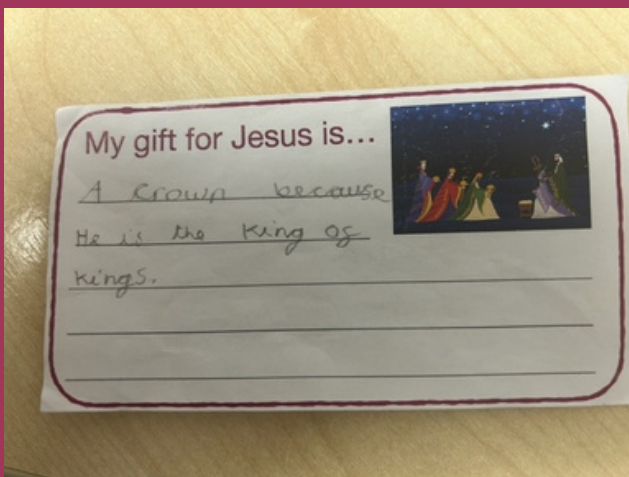 My gift for Jesus is...
A crown because
He is the King of
kings.